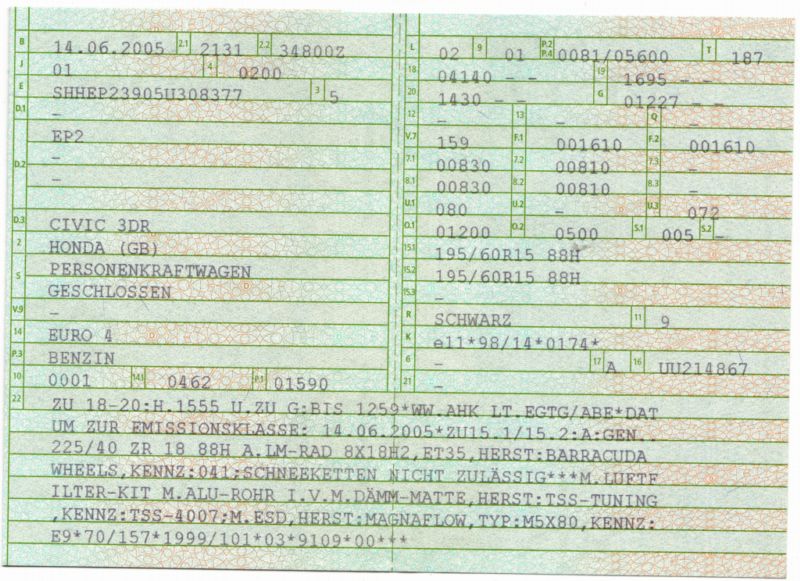 B 14.06.2005 2.1 2131 2.2 34800Z
J 01 4 0200
E SHHEP23905U308377 3 5
D.1 –
D.2 EP2
–
–
D.3 CIVIC 3DR
2 HONDA (GB)
5 PERSONENKRAFTWAGEN
GESCHLOSSEN
V.9 –
14 EURO 4
P.3 BENZIN
10 0001 14.1 0462 P.1 01590
L 02 9 01 P.2 P.4 0081/05600 T 187
18 04140 – – 19 1695 – –
20 1430 – – G 01227 – –
12 – 13 – Q –
V.7 159 F.1 001610 F.2 001610
7.1 00830 7.2 00810 7.3 –
8.1 00830 8.2 00810 8.3 –
U.1 080 U.2 – U.3 072
O.1 01200 O.2 0500 S.1 005 S.2 –
15.1 195/60R15 88H
15.2 195/60R15 88H
15.3 –
R SCHWARZ 11 9
K e11*98/14*0174*
6 – 17 A 16 UU214867
21 –
22 ZU 18-20:H.1555 U.ZU G:BIS 1259*WW.AHK LT.EGTG/ABE*DAT
UM ZUR EMISSIONSKLASSE: 14.06.2005*ZU15.1/15.2:A:GEN..
225/40 ZR 18 88H A.LM-RAD 8X18H2,ET35,HERST:BARRACUDA
WHEELS,KENNZ:041;SCHNEEKETTEN NICHT ZULÄSSIG***M.LUFTF
ILTER-KIT M.ALU-ROHR I.V.M.DÄMM-MATTE,HERST:TSS-TUNING
,KENNZ:TSS-4007;M.ESD,HERST:MAGNAFLOW,TYP:M5X80,KENNZ:
E9*70/157*1999/101*03*9109*00***